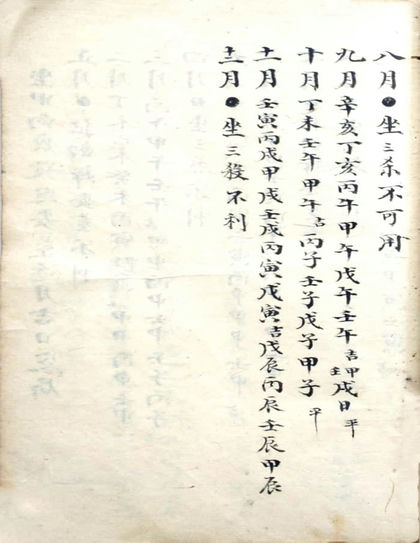 八月●坐三杀不可用
九月辛亥丁亥丙午甲午戊午壬午吉甲壬戌日平
十月丁未壬午甲午吉丙子壬子戊子甲子平
十一月壬寅丙戌甲戌壬戌丙寅戊寅吉戊辰丙辰壬辰甲辰
十二月●坐三殺不利